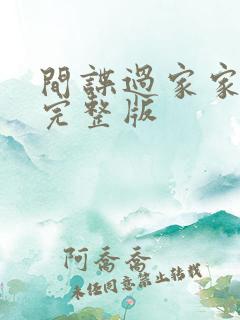 間諜過家家
完整版
阿喬喬
未經同意禁止轉載